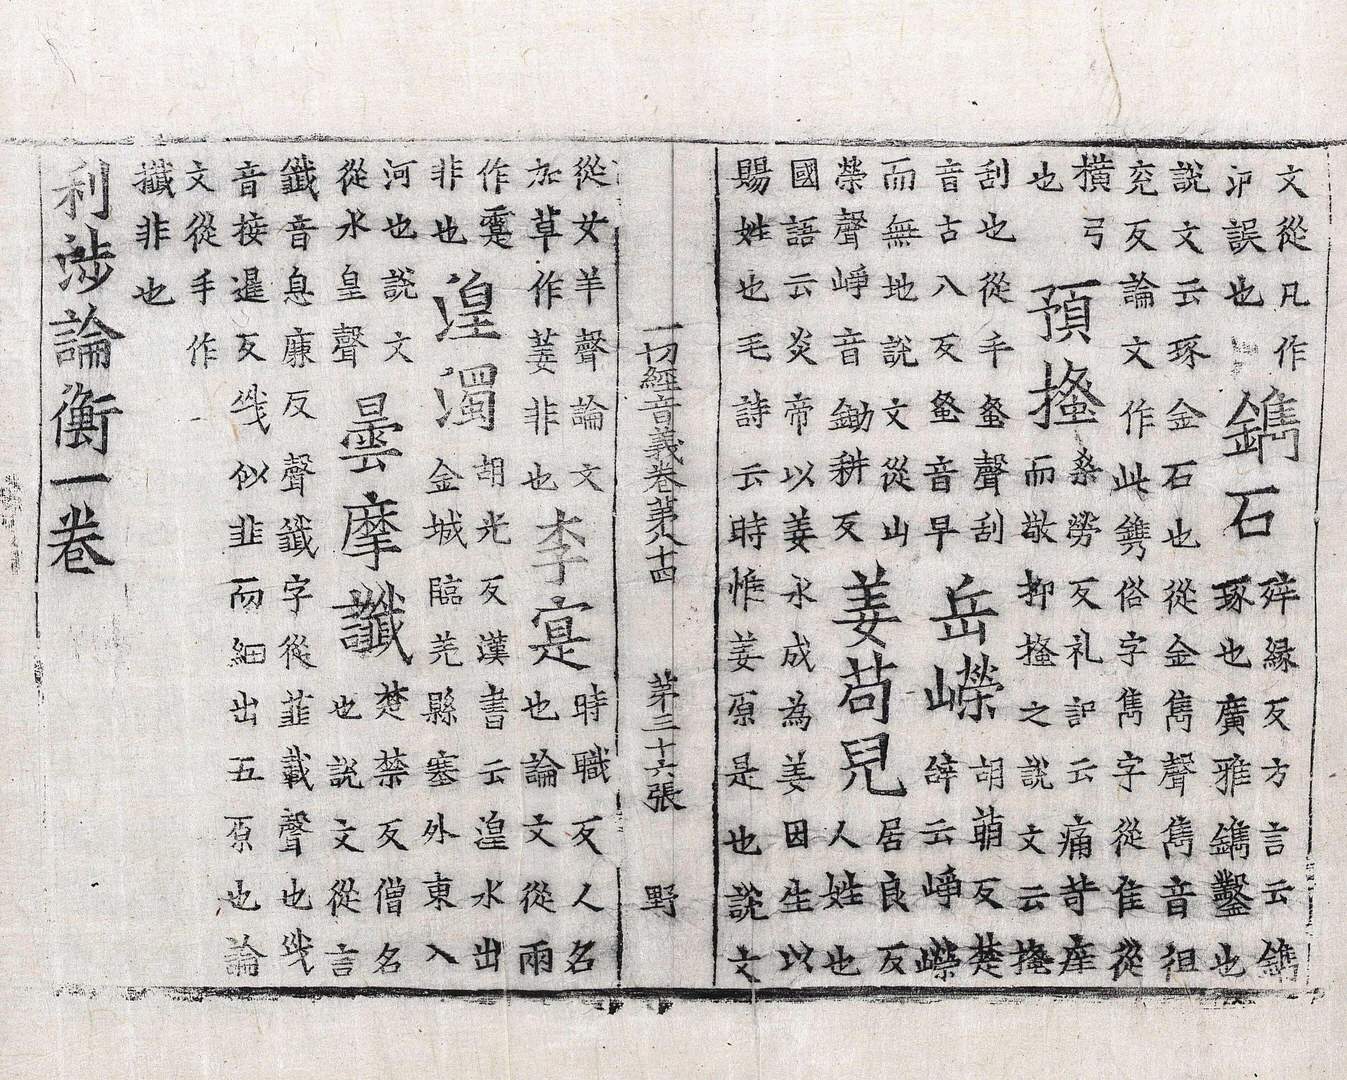 文從凡作
沪誤也 鐫石 㛮緣反方言云鐫
琢也廣雅鐫鑿也
說文云琢金石也從金雋聲雋音徂
兗反論文作此鎸俗字雋字從隹從
橫弓
也 預搔 桑勞反礼記云痛苛癢
而敬抑搔之說文云搔
刮也從手蚤聲刮
音古八反蚤音早 岳嶸 胡萌反楚
辭云崢嶸
而無地說文從山
榮聲崢音鋤耕反 姜苟兒 居良反
人姓也
國語云炎帝以姜水成為姜因生以
賜姓也毛詩云時惟姜原是也說文
一切經音義卷第八十四 第三十六張 野
從女羊聲論文
加草作葁非也 李寔 時職反人名
也論文從雨
作霻
非也 湟濁 胡光反漢書云湟水出
金城臨羌縣塞外東入
河也說文
從水皇聲 曇摩讖 楚禁反僧名
也說文從言
韱音息廉反聲韱字從韭𢦏聲也𢦏
音接暹反韱似韭而細出五原也論
文從手作
攕非也
利涉論衡一卷